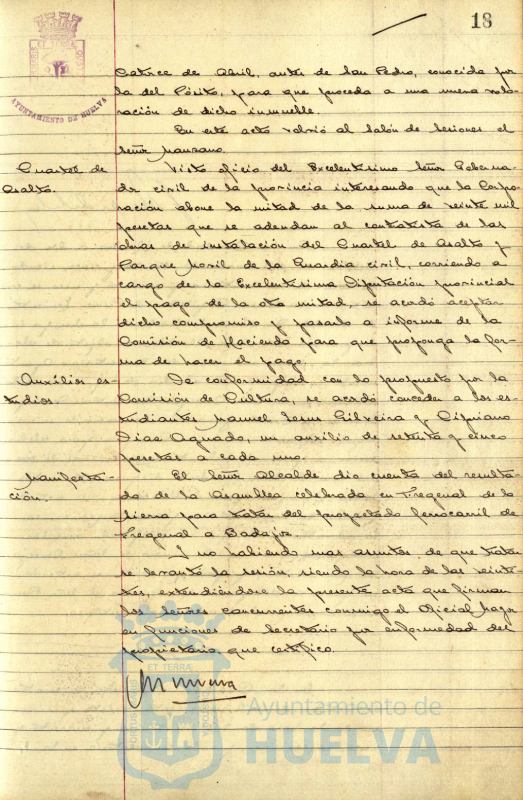 18
AYUNTAMIENTO DE HUELVA
Catorce de Abril, antes de San Pedro, conocida por
la del Pósito, para que proceda a una nueva valo-
ración de dicho inmueble.
En este acto volvió al salón de sesiones el
Señor Manzano.
Cuartel de
Asalto.
Visto oficio del Excelentísimo Señor Goberna-
dor civil de la provincia interesando que la Corpo-
ración abone la mitad de la suma de veinte mil
pesetas que se adeudan al contratista de las
obras de instalación del Cuartel de Asalto y
Parque Movil de la Guardia civil, corriendo a
cargo de la Excelentísima Diputación provincial
el pago de la otra mitad, se acordó aceptar
dicho compromiso y pasarlo a informe de la
Comisión de Hacienda para que proponga la for-
ma de hacer el pago.
Auxilios es-
tudios.
De conformidad con lo propuesto por la
Comisión de Cultura, se acordó conceder a los es-
tudiantes Manuel Jesus Silveira y Cipriano
Diaz Aguado, un auxilio de setenta y cinco
pesetas a cada uno.
Manifesta-
ción.
El Señor Alcalde dio cuenta del resulta-
do de la Asamblea celebrada en Fregenal de la
Sierra para tratar del proyectado ferrocarril de
Fregenal a Badajoz.
Y no habiendo mas asuntos de que tratar
se levantó la sesión, siendo la hora de las veinte
tres, extendiéndose la presente acta que firman
los Señores concurrentes conmigo el Oficial Mayor
en funciones de Secretario por enfermedad del
propietario, que certifico.
Ayuntamiento de
HUELVA